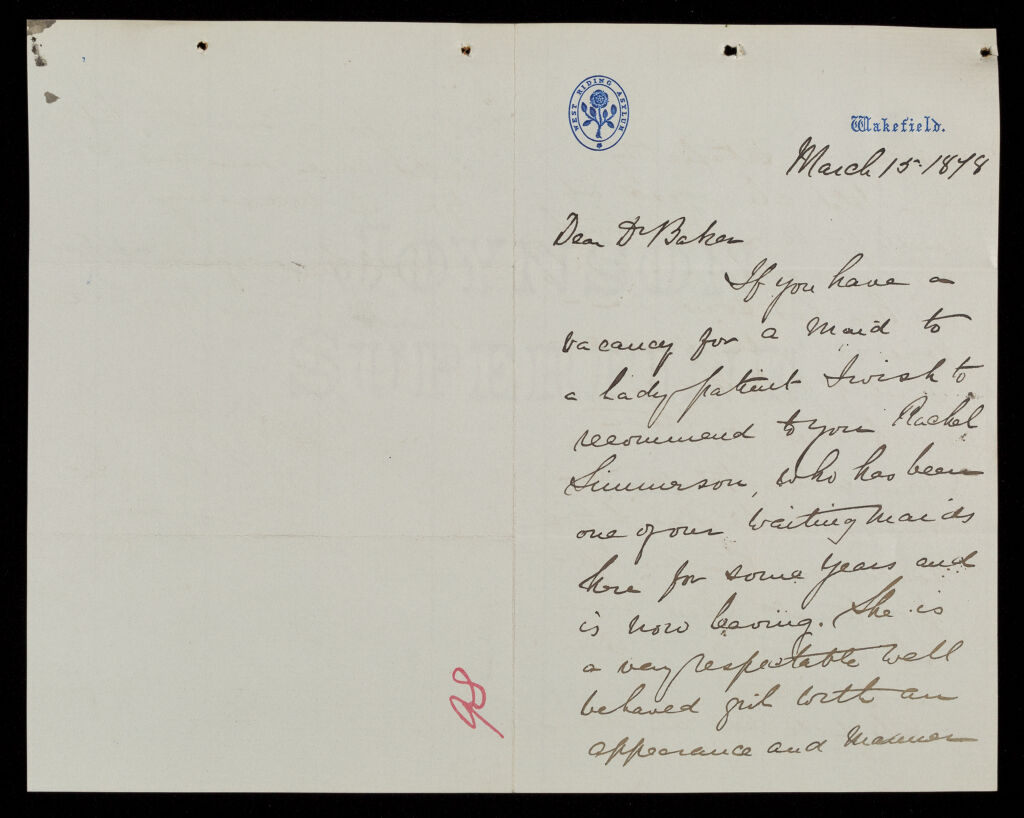 WEST RIDING ASYLUM
Wakefield.
March 15. 1878
Dear Dr Baker
If you have a
vacancy for a Maid to
a Lady patient I wish to
recommend to you Rachel
Simmerson, who has been
one of our Waiting Maids
here for some years and
is now leaving. She is
a very respectable well
behaved girl with an
appearance and manner
98